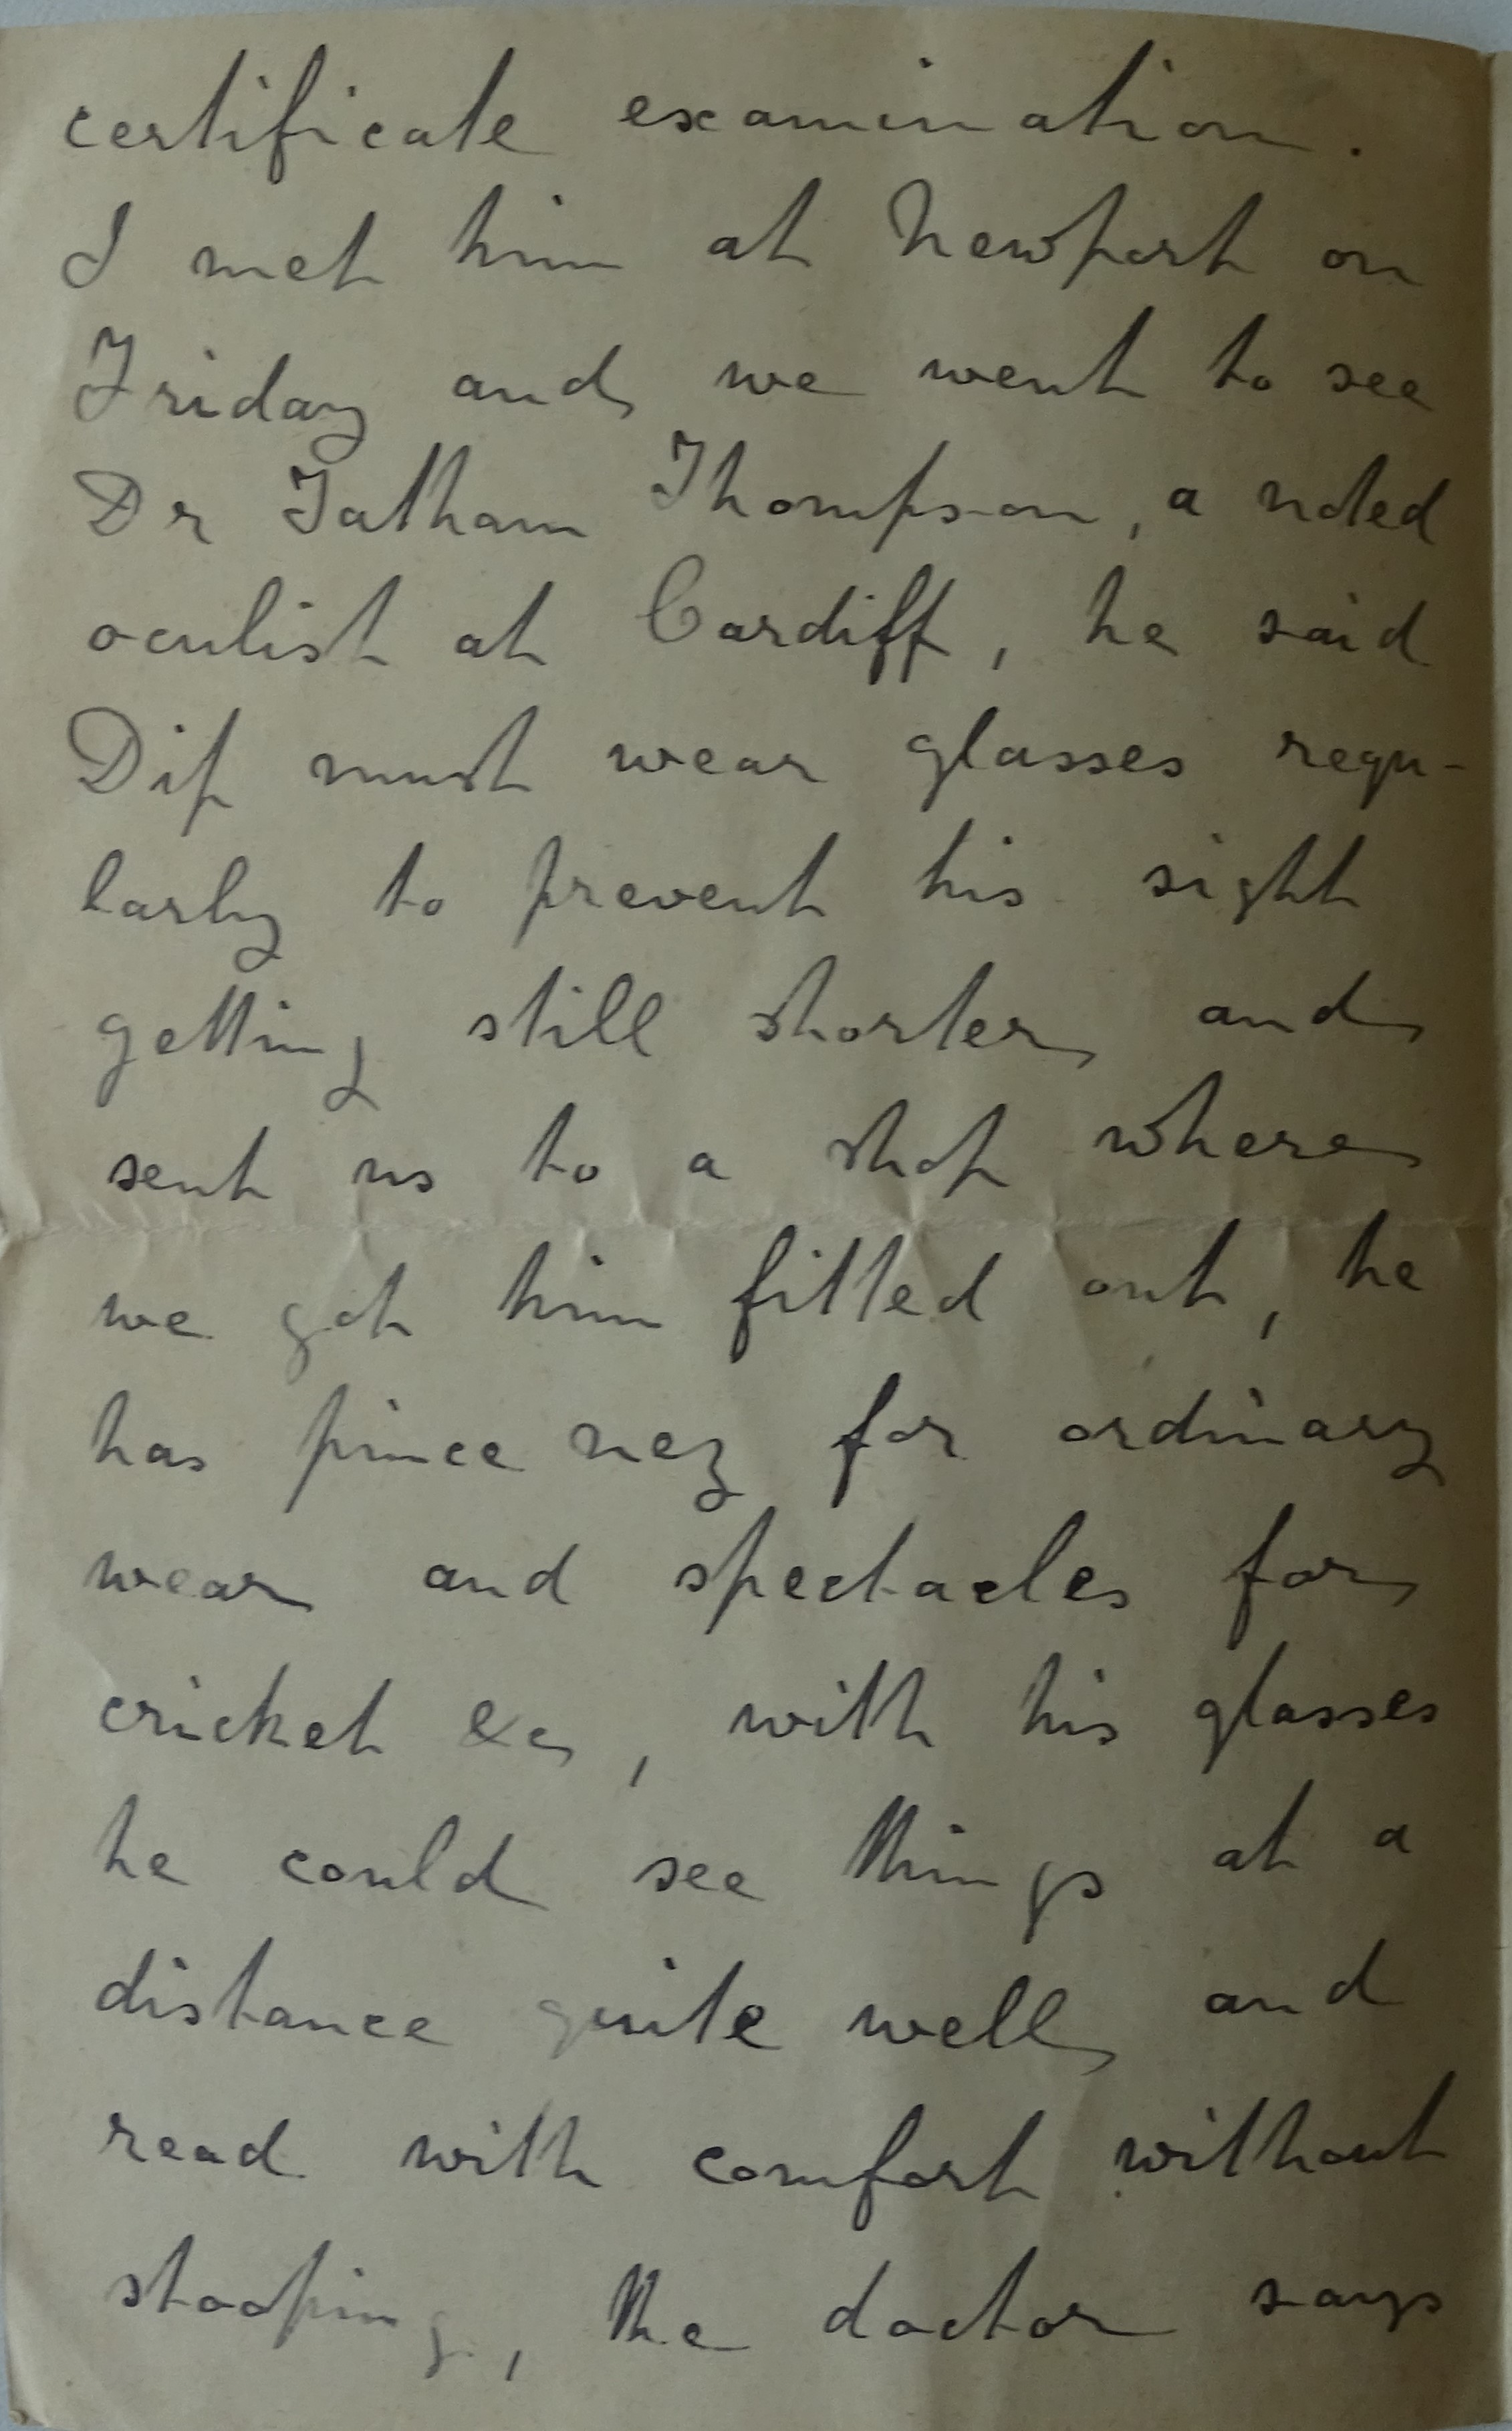 certificate examination.
I met him at Newport on
Friday and we went to see
Dr Tatham Thompson, a noted
oculist at Cardiff, he said
Dip must wear glasses regu-
larly to prevent his sight
getting still shorter and
sent us to a shop where
we got him fitted out, he
has pince nez for ordinary
wear and spectacles for
cricket &c, with his glasses
he could see things at a
distance quite well and
read with comfort without
stooping, the doctor says